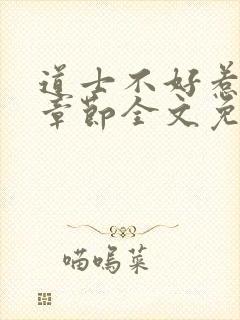 道士不好惹
章节全文免
喵呜菜